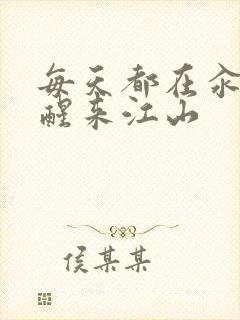 每天都在汆
醒来江山
侯某某